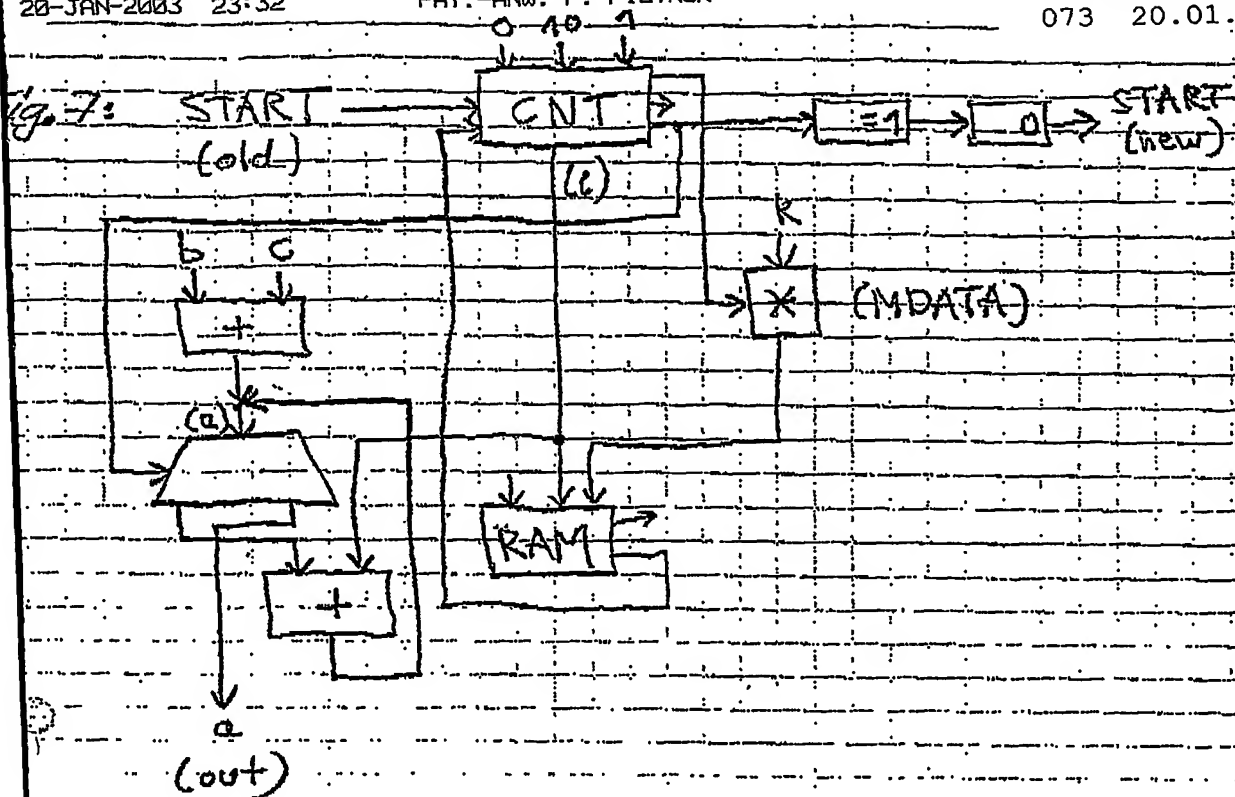 20-JAN-2003 23:32
073 20.01.
0 10 1
ig. 7: START
(old)
CNT
=1
0
START
(new)
(i)
k
b c
+
×
(MDATA)
(a)
RAM
+
a
(out)